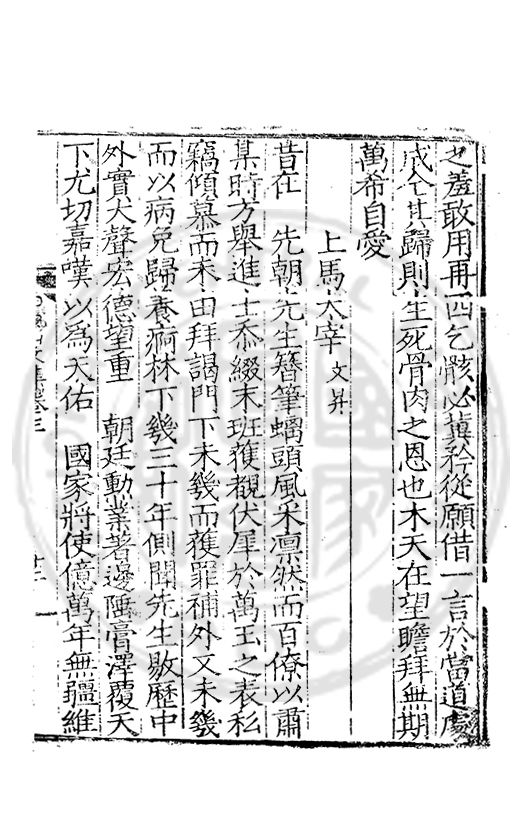 之羞敢用再四乞骸必冀矜從願借一言於當道處
成全其歸則生死骨肉之恩也木天在望瞻拜無期
萬希自愛
上馬太宰文昇
昔在　先朝先生簪筆螭頭風采凛然而百僚以肅
某時方舉進士忝綴末班獲覩伏犀於萬玉之表私
竊傾慕而未由拜謁門下未幾而獲罪補外又未幾
而以病免歸養痾林下幾三十年側聞先生敭歷中
外實大聲宏德望重　朝廷勳業著邊陲膏澤覆天
下尤切嘉嘆以爲天佑　國家將使億萬年無疆維